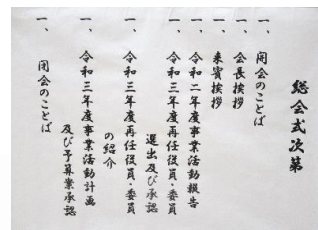 総会式次第
一、開会のことば
一、会長挨拶
一、来賓挨拶
一、令和二年度事業活動報告
一、令和三年度再任役員・委員
選出及び承認
一、令和三年度再任役員・委員
の紹介
一、令和三年度事業活動計画
及び予算業承認
一、閉会のことば